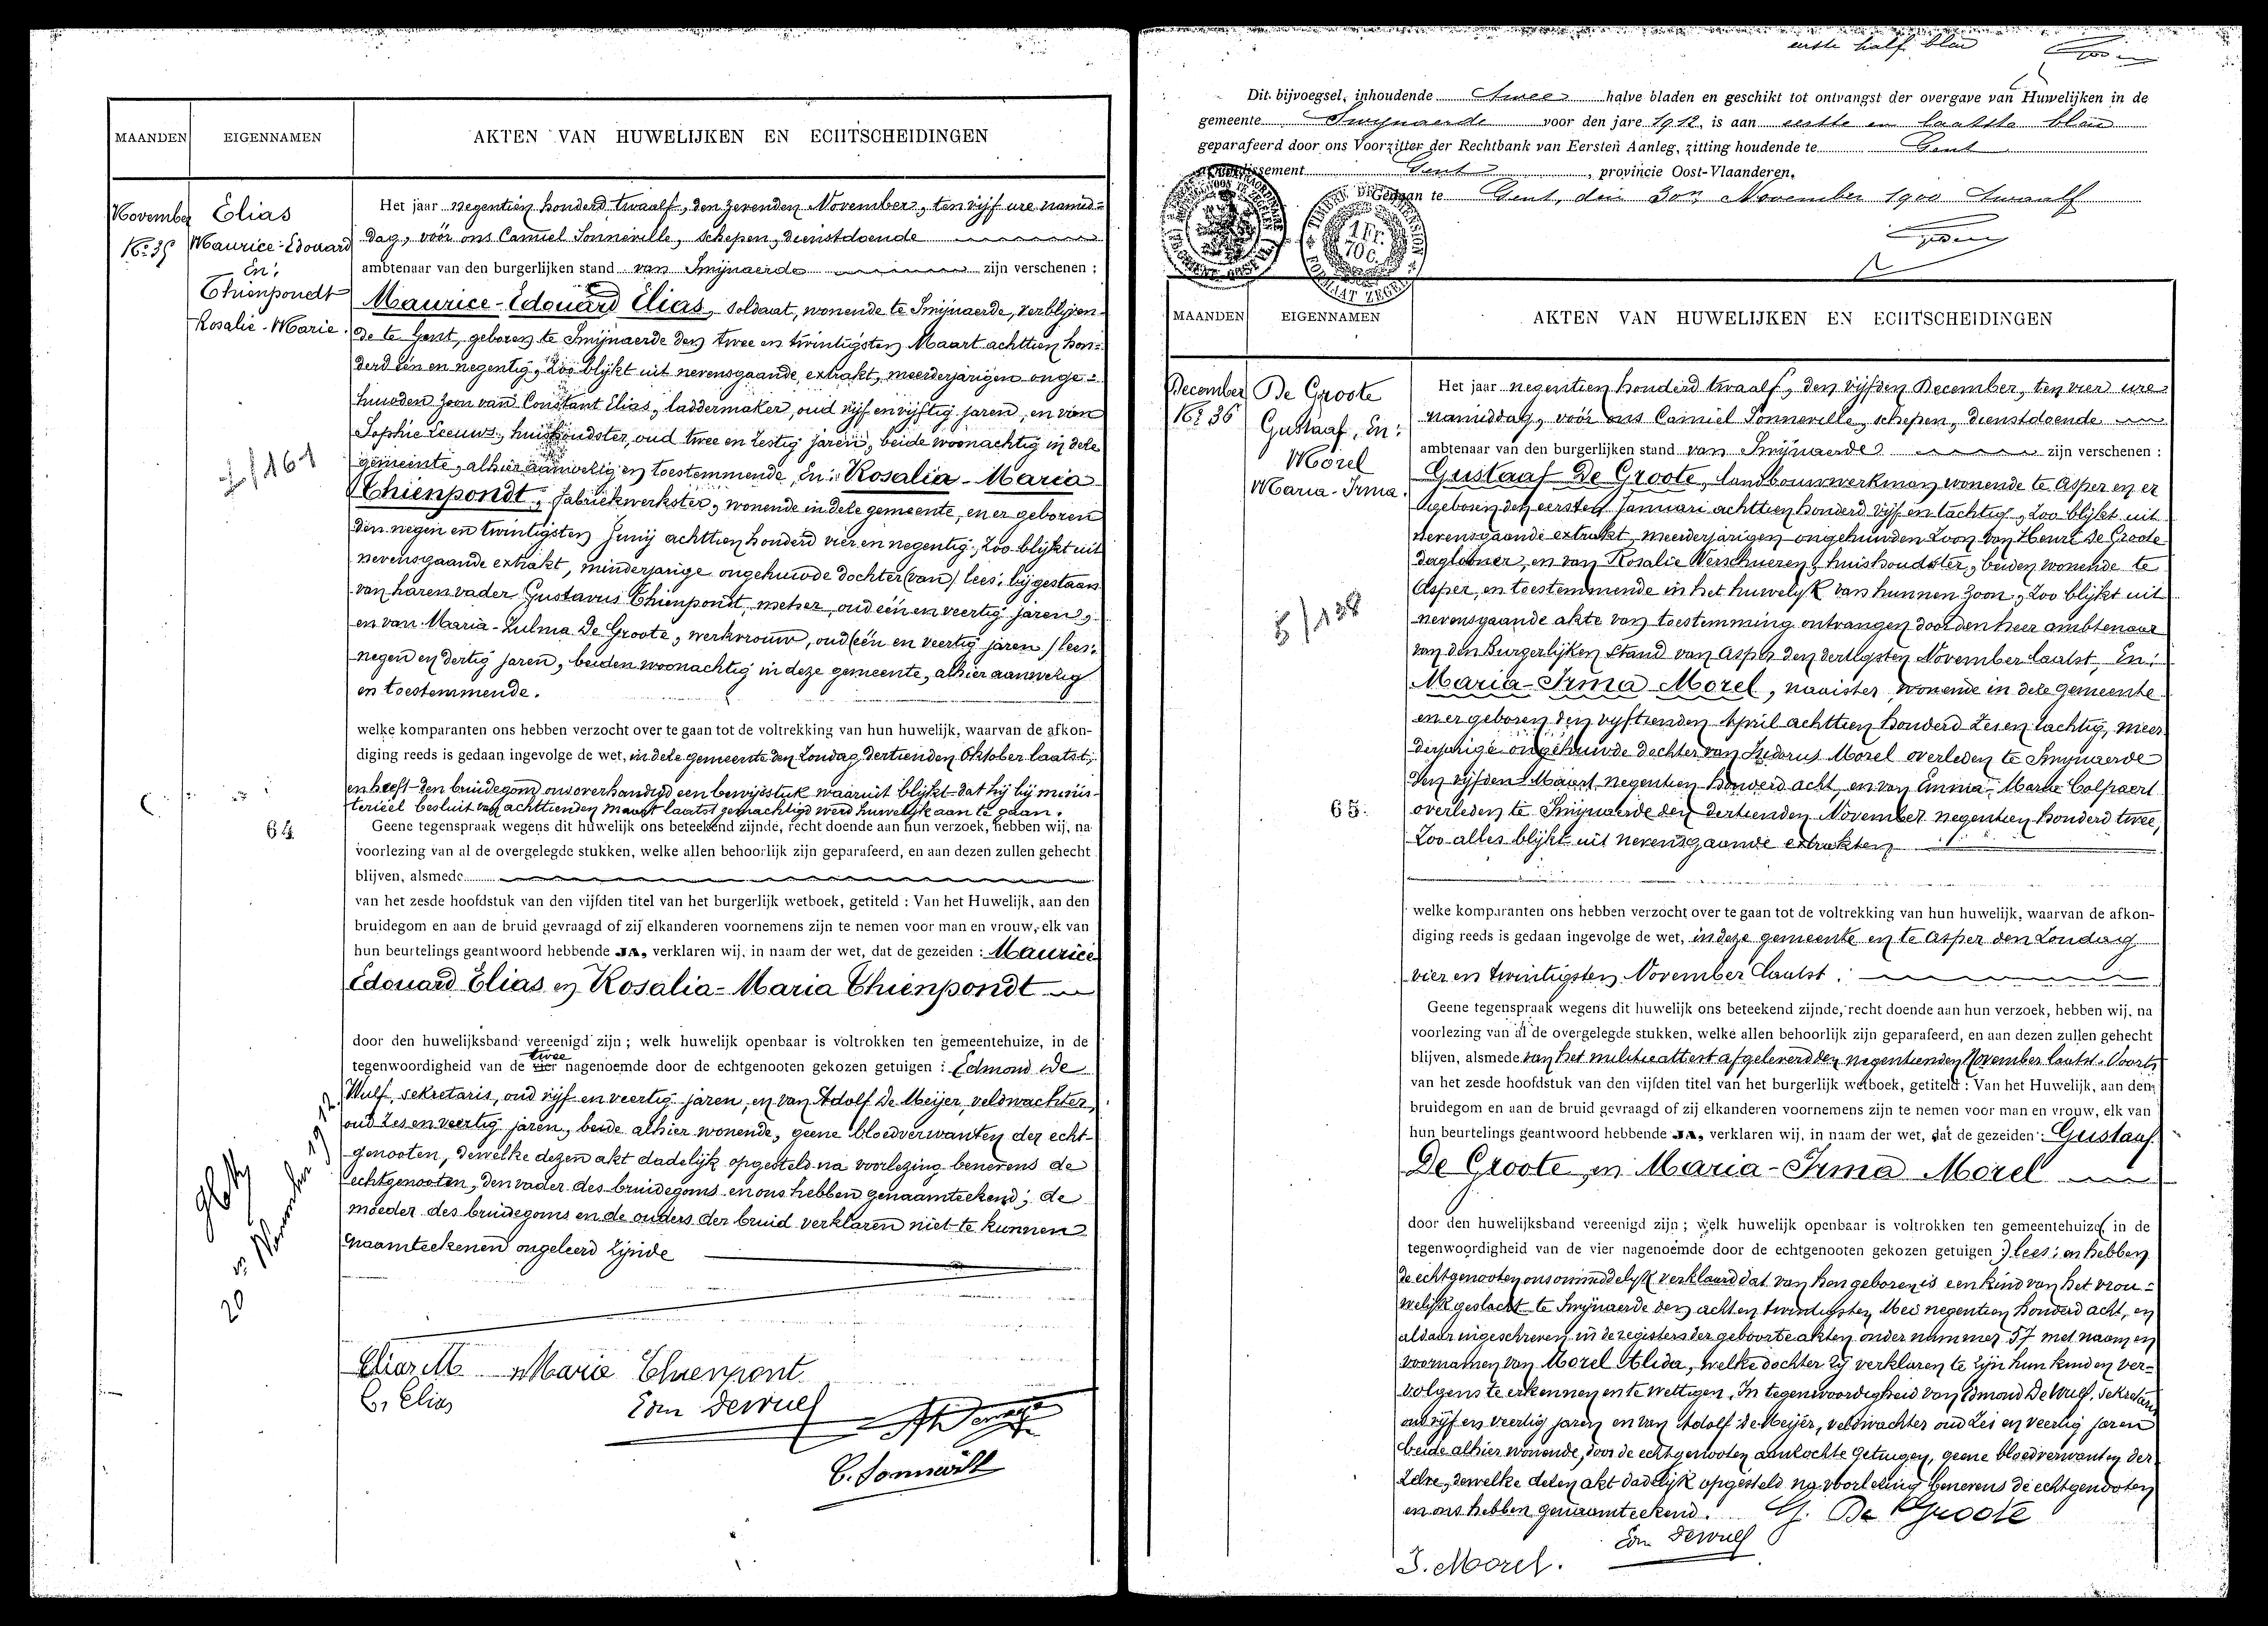 MAANDEN
EIGENNAMEN
AKTEN VAN HUWELIJKEN EN ECHTSCHEIDINGEN
November
No. 35
Elias
Maurice-Edouard
En:
Thienpondt
Rosalie-Marie.
Het jaar negentien honderd twaalf, den zevenden November, ten vijf ure namid=
dag, vóór ons Camiel Sonneville, schepen, dienstdoende
ambtenaar van den burgerlijken stand van Swijnaerde zijn verschenen :
Maurice-Edouard Elias, soldaat, wonende te Swijnaerde, verblijven-
de te Gent, geboren te Swijnaerde den twee en twintigsten Maart achttien hon=
derd één en negentig, zoo blijkt uit nevensgaande extrakt, meerderjarigen onge=
huwden zoon van Constant Elias, laddermaker, oud vijf en vijftig jaren, en van
Sophie Leeuws, huishoudster, oud twee en zestig jaren, beide woonachtig in deze
gemeente, alhier aanwezig en toestemmende, En: Rosalia-Maria
Thienpondt, fabriekwerkster, wonende in deze gemeente, en er geboren
den negen en twintigsten Junij achttien honderd vier en negentig, zoo blijkt uit
nevensgaande extrakt, minderjarige ongehuwde dochter (van) lees: bijgestaan
van haren vader Gustavus Thienpondt, metser, oud één en veertig jaren,
en van Maria-Zulma De Groote, werkvrouw, oud (één en veertig jaren) lees:
negen en dertig jaren, beiden woonachtig in deze gemeente, alhier aanwezig
en toestemmende.
welke komparanten ons hebben verzocht over te gaan tot de voltrekking van hun huwelijk, waarvan de afkon-
diging reeds is gedaan ingevolge de wet, in deze gemeente den Zondag dertienden Oktober laatst;
en heeft den bruidegom ons overhandigd een bewijsstuk waaruit blijkt dat hij bij minis-
terieel besluit van achttienden maart laatst gemachtigd werd huwelijk aan te gaan.
64
Geene tegenspraak wegens dit huwelijk ons beteekend zijnde, recht doende aan hun verzoek, hebben wij, na
voorlezing van al de overgelegde stukken, welke allen behoorlijk zijn geparafeerd, en aan dezen zullen gehecht
blijven, alsmede
van het zesde hoofdstuk van den vijfden titel van het burgerlijk wetboek, getiteld : Van het Huwelijk, aan den
bruidegom en aan de bruid gevraagd of zij elkanderen voornemens zijn te nemen voor man en vrouw, elk van
hun beurtelings geantwoord hebbende JA, verklaren wij, in naam der wet, dat de gezeiden : Maurice
Edouard Elias en Rosalia-Maria Thienpondt
door den huwelijksband vereenigd zijn ; welk huwelijk openbaar is voltrokken ten gemeentehuize, in de
twee
tegenwoordigheid van de vier nagenoemde door de echtgenooten gekozen getuigen : Edmond De
Wulf, sekretaris, oud vijf en veertig jaren, en van Adolf De Meijer, veldwachter,
oud zes en veertig jaren, beide alhier wonende, geene bloedverwanten der echt-
genooten, dewelke dezen akt dadelijk opgesteld na voorlezing benevens de
echtgenooten, den vader des bruidegoms en ons hebben genaamteekend; de
moeder des bruidegoms en de ouders der bruid verklaren niet te kunnen
naamteekenen ongeleerd zijnde
20 November 1912
Elias M
Marie Thienpont
C. Elias
Edm Dewulf
C. Sonneville
eerste half blad
Dit bijvoegsel, inhoudende twee halve bladen en geschikt tot ontvangst der overgave van Huwelijken in de
gemeente Swijnaerde voor den jare 1912, is aan eerste en laatste blad
geparafeerd door ons Voorzitter der Rechtbank van Eersten Aanleg, zitting houdende te Gent
arrondissement Gent, provincie Oost-Vlaanderen.
Gedaan te Gent, den 30n November 1900 twaalf
TIMBRE DE DIMENSION
1 FR.
70 C.
FORMAAT ZEGEL
MAANDEN
EIGENNAMEN
AKTEN VAN HUWELIJKEN EN ECHTSCHEIDINGEN
December
No. 36
De Groote
Gustaaf, En:
Morel
Maria-Irma.
Het jaar negentien honderd twaalf, den vijfden December, ten vier ure
namiddag, vóór ons Camiel Sonneville, schepen, dienstdoende
ambtenaar van den burgerlijken stand van Swijnaerde zijn verschenen :
Gustaaf De Groote, landbouwwerkman, wonende te Asper en er
geboren den eersten Januari achttien honderd vijf en tachtig, zoo blijkt uit
nevensgaande extrakt, meerderjarigen ongehuwden zoon van Henri De Groote
daglooner, en van Rosalie Verschueren, huishoudster, beiden wonende te
Asper, en toestemmende in het huwelijk van hunnen zoon, zoo blijkt uit
nevensgaande akte van toestemming ontvangen door den heer ambtenaar
van den Burgerlijken Stand van Asper den dertigsten November laatst, En:
Maria-Irma Morel, naaister, wonende in deze gemeente
en er geboren den vijftienden April achttien honderd zes en tachtig, meer
derjarige ongehuwde dochter van Isidorus Morel overleden te Swijnaerde
den vijfden Maart negentien honderd acht, en van Emma-Marie Colpaert
65.
overleden te Swijnaerde den dertienden November negentien honderd twee,
Zoo alles blijkt uit nevensgaande extrakten
welke komparanten ons hebben verzocht over te gaan tot de voltrekking van hun huwelijk, waarvan de afkon-
diging reeds is gedaan ingevolge de wet, in deze gemeente en te Asper den Zondag
vier en twintigsten November laatst.
Geene tegenspraak wegens dit huwelijk ons beteekend zijnde, recht doende aan hun verzoek, hebben wij, na
voorlezing van al de overgelegde stukken, welke allen behoorlijk zijn geparafeerd, en aan dezen zullen gehecht
blijven, alsmede van het militieattest afgeleverd den negentienden November laatst. Voorts
van het zesde hoofdstuk van den vijfden titel van het burgerlijk wetboek, getiteld : Van het Huwelijk, aan den
bruidegom en aan de bruid gevraagd of zij elkanderen voornemens zijn te nemen voor man en vrouw, elk van
hun beurtelings geantwoord hebbende JA, verklaren wij, in naam der wet, dat de gezeiden : Gustaaf
De Groote, en Maria-Irma Morel
door den huwelijksband vereenigd zijn ; welk huwelijk openbaar is voltrokken ten gemeentehuize (in de
tegenwoordigheid van de vier nagenoemde door de echtgenooten gekozen getuigen) lees: en hebben
de echtgenooten ons onmiddelijk verklaard dat van hen geboren is een kind van het vrou=
welijk geslacht te Swijnaerde den acht en twintigsten Mei negentien honderd acht, en
aldaar ingeschreven in de registers der geboorteakten onder nummer 57 met naam en
voornamen van Morel Alida, welke dochter zij verklaren te zijn hun kind en ver=
volgens te erkennen en te wettigen. In tegenwoordigheid van Edmond De Wulf, sekretaris
oud vijf en veertig jaren en van Adolf De Meijer, veldwachter oud zes en veertig jaren
beide alhier wonende, door de echtgenooten aanzochte getuigen, geene bloedverwanten der
zelve, dewelke dezen akt dadelijk opgesteld na voorlezing benevens de echtgenooten
en ons hebben genaamteekend.
G. De Groote
Edm Dewulf
I. Morel.